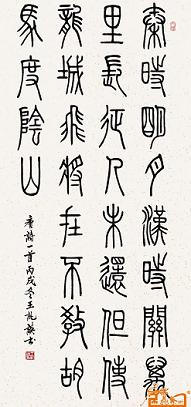 秦時明月漢時關萬
里長征人未還但使
龍城飛將在不教胡
馬度陰山
唐詩一首丙戌冬王